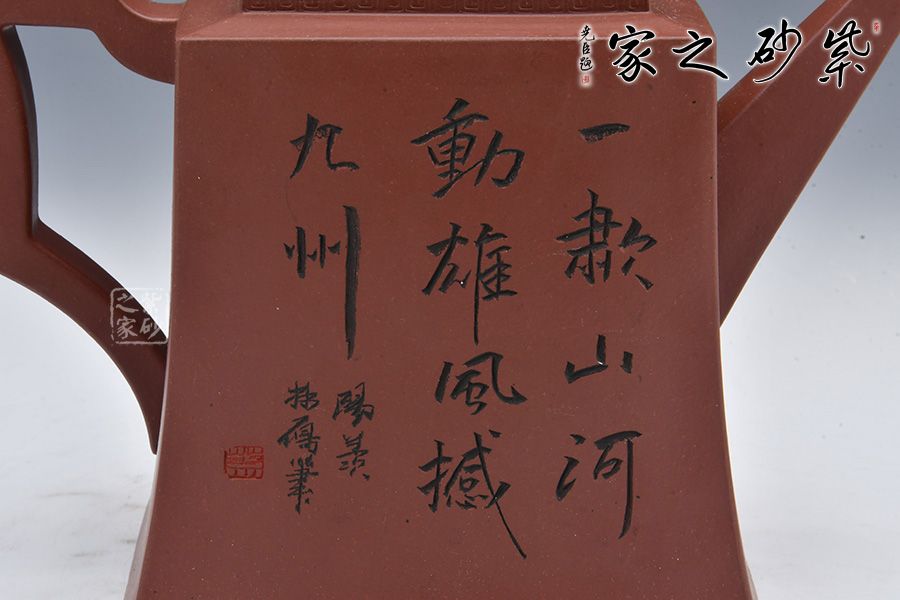 紫砂之家
堯臣題
一歗山河
動雄風撼
九州
陽羨
筆
紫砂
之家